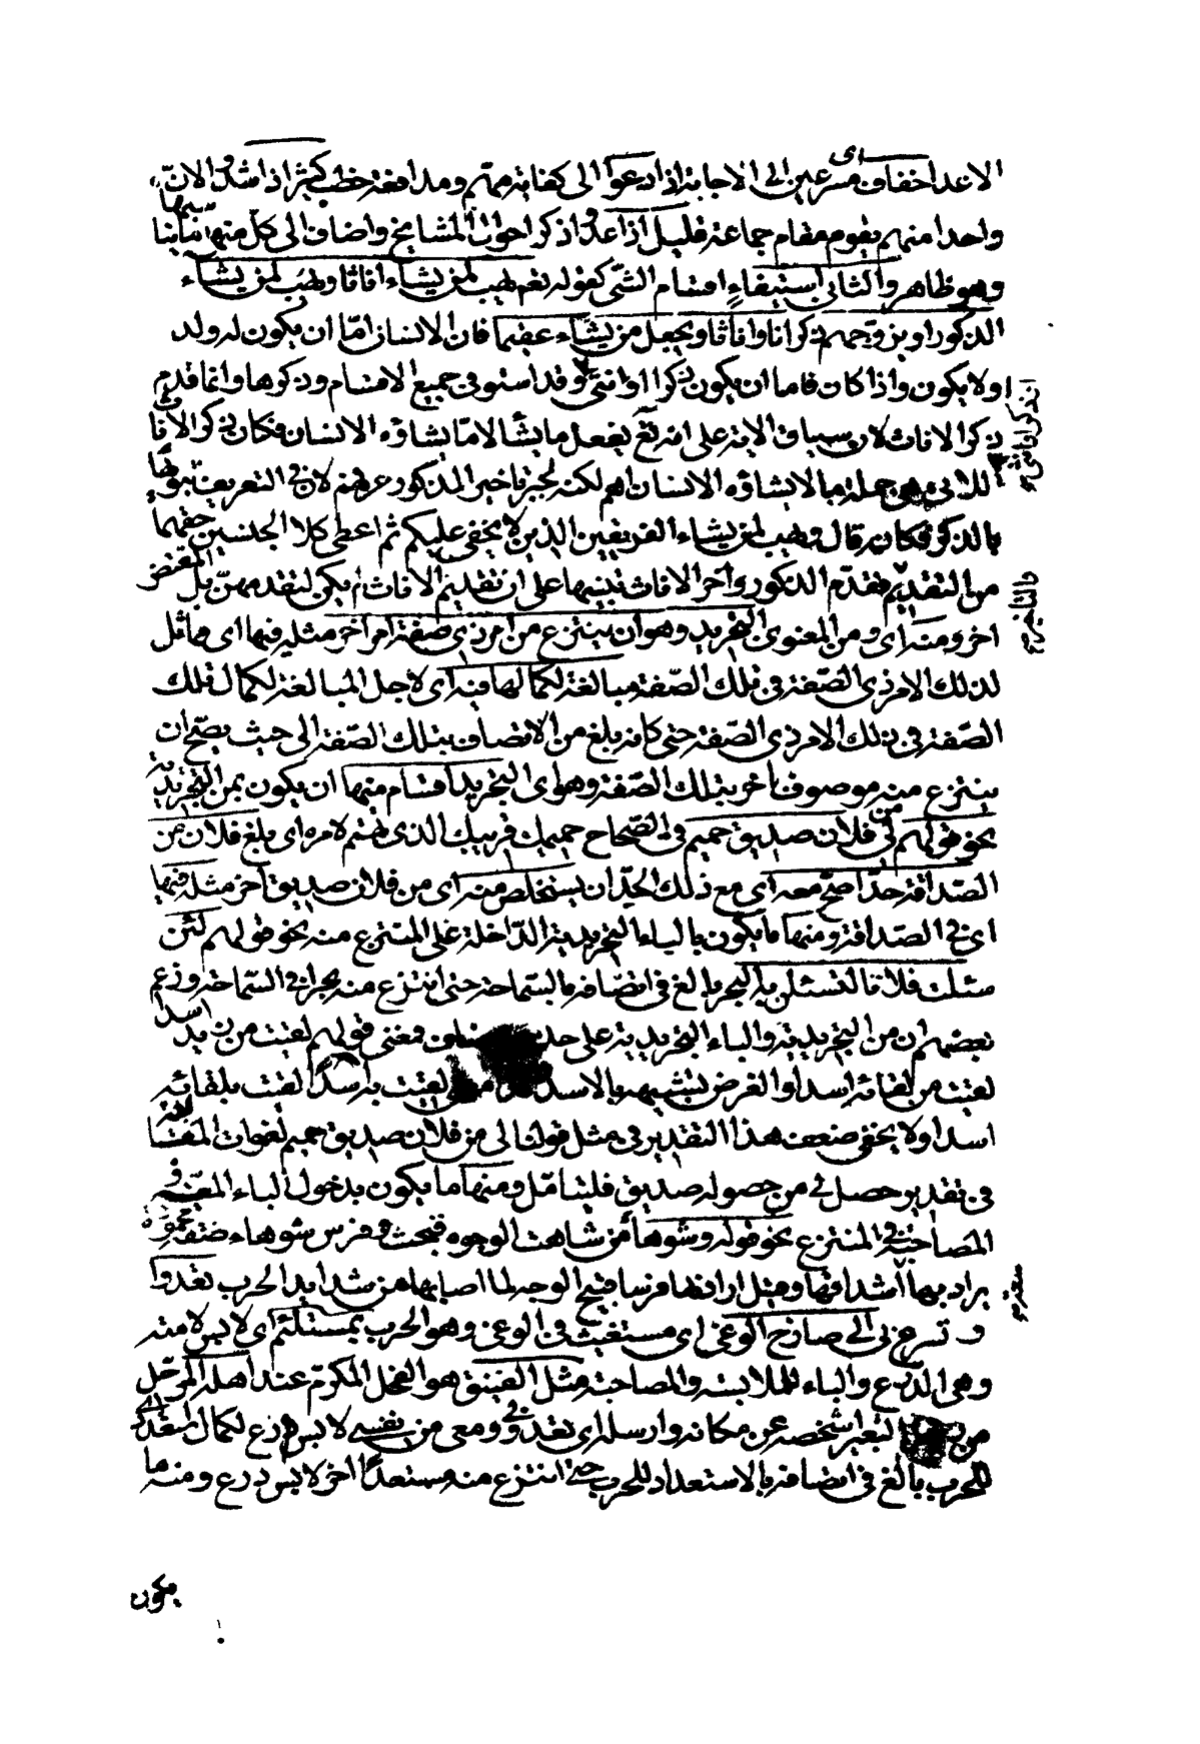 الاعداء خفاف اى مسرعين الى الاجابة اذا دعوا الى كفاية مهم ومدافعة خطب كثير اذا شدوا لان
واحدا منهم يقوم مقام جماعة قليل اذا عدوا ذكر احوال المشايخ واضاف الى كل منها ما يناسبها
وهو ظاهر والثانى استيفاء اقسام الشئ كقوله تعم يهب لمن يشاء اناثا ويهب لمن يشاء
الذكور او يزوجهم ذكرانا واناثا ويجعل من يشاء عقيما فان الانسان اما ان يكون له ولد
او لا يكون واذا كان فاما ان يكون ذكرا او انثى وقد استوفى جميع الاقسام وذكرها وانما قدم
ذكر الاناث لان سياق الاية على انه تع يفعل ما يشاء لا ما يشاؤه الانسان فكان ذكر الاناث
اللاتى هى من جملة ما لا يشاؤه الانسان اهم لكنه لجبر تاخير الذكور عرفهم لان فى التعريف تنويها
بالذكر فكانه قال ويهب لمن يشاء الفريقين الذين لا يخفى عليكم ثم اعطى كلا الجنسين حقهما
من التقديم فقدم الذكور واخر الاناث تنبيها على ان تقديم الاناث لم يكن لتقدمهن بل لمقتض
اخر ومنه اى ومن المعنوى التجريد وهو ان ينتزع من امر ذى صفة امر اخر مثله فيها اى مماثل
لذلك الامر ذى الصفة فى تلك الصفة مبالغة لكمالها فيه اى لاجل المبالغة لكمال تلك
الصفة فى ذلك الامر ذى الصفة حتى كانه بلغ من الاتصاف بتلك الصفة الى حيث يصح ان
ينتزع منه موصوف اخر بتلك الصفة وهو اى التجريد اقسام منها ان يكون بمن التجريدية
نحو قولهم لى من فلان صديق حميم فى الصحاح حميمك قريبك الذى تهتم لامره اى بلغ فلان من
الصداقة حدا صح معه اى مع ذلك الحد ان يستخلص منه اى من فلان صديق اخر مثله فيها
اى فى الصداقة ومنها ما يكون بالباء التجريدية الداخلة على المنتزع منه نحو قولهم لئن
سئلت فلانا لتسئلن به البحر بالغ فى اتصافه بالسماحة حتى انتزع منه بحرا فى السماحة وزعم
بعضهم ان من التجريدية والباء التجريدية على حذف مضاف فمعنى قولهم لقيت من زيد اسدا
لقيت من لقائه اسدا والغرض تشبيهه بالاسد لقيت به اسدا لقيت بلقائه
اسدا ولا يخفى ضعف هذا التقدير فى مثل قولنا لى من فلان صديق حميم لفوات المبالغة
فى تقدير حصل لى من حصوله صديق فليتامل ومنها ما يكون بدخول باء المعية و
المصاحبة فى المنتزع نحو قوله وشوهاء من شاهت الوجوه قبحت وفرس شوهاء صفة محمودة
يراد بها سعة اشداقها وقيل ارادبها فرسا قبيح الوجه لما اصابها من شدايد الحرب تعدوا
تسرع بى الى صارخ الوغى اى مستغيث فى الوغى وهو الحرب بمستلئم اى لابس لامته
وهى الدرع والباء للملابسة والمصاحبة مثل الفنيق هو الفحل المكرم عند اهله المرحل
من البعير اشخصه عن مكانه وارسله اى تعدو بى ومعى من نفسى لابس درع لكمال استعدادى
للحرب بالغ فى اتصافه بالاستعداد للحرب حتى انتزع منه مستعدا اخر لابس درع ومنها ما
يكون